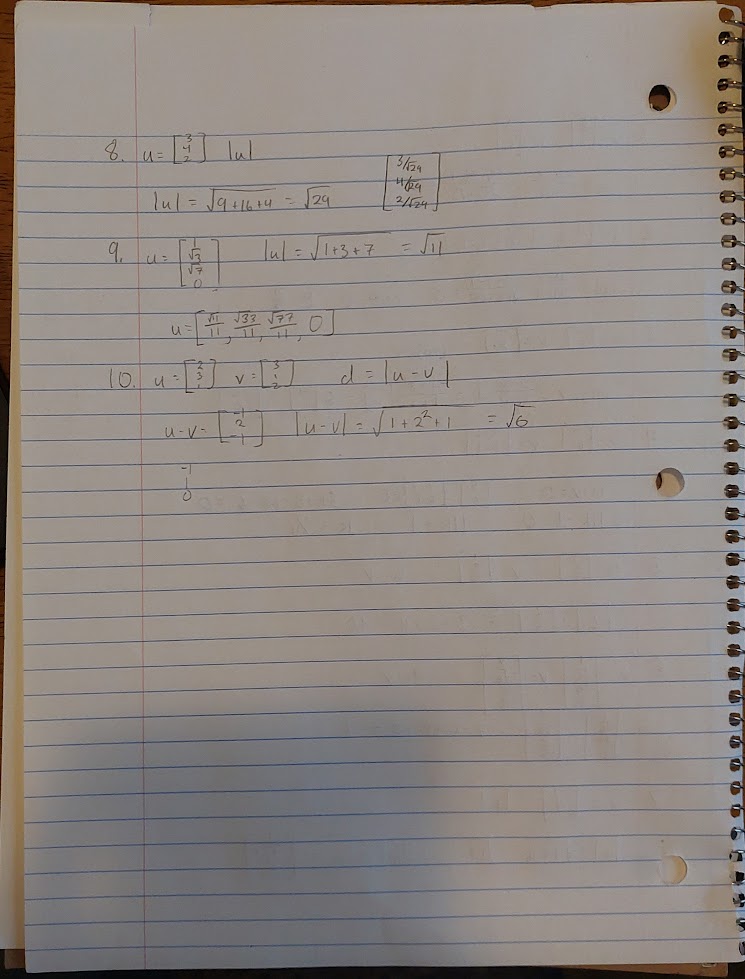 8. u = [3 4 2] |u|
|u| = √9+16+4 = √29 [3/√29 4/√29 2/√29]
9. u = [1 √3 √7 0] |u| = √1+3+7 = √11
u = [√11/11, √33/11, √77/11, 0]
10. u = [2 3 1] v = [3 1 2] d = |u - v|
u - v = [-1 2 -1] |u - v| = √1+2²+1 = √6
-1
1
0